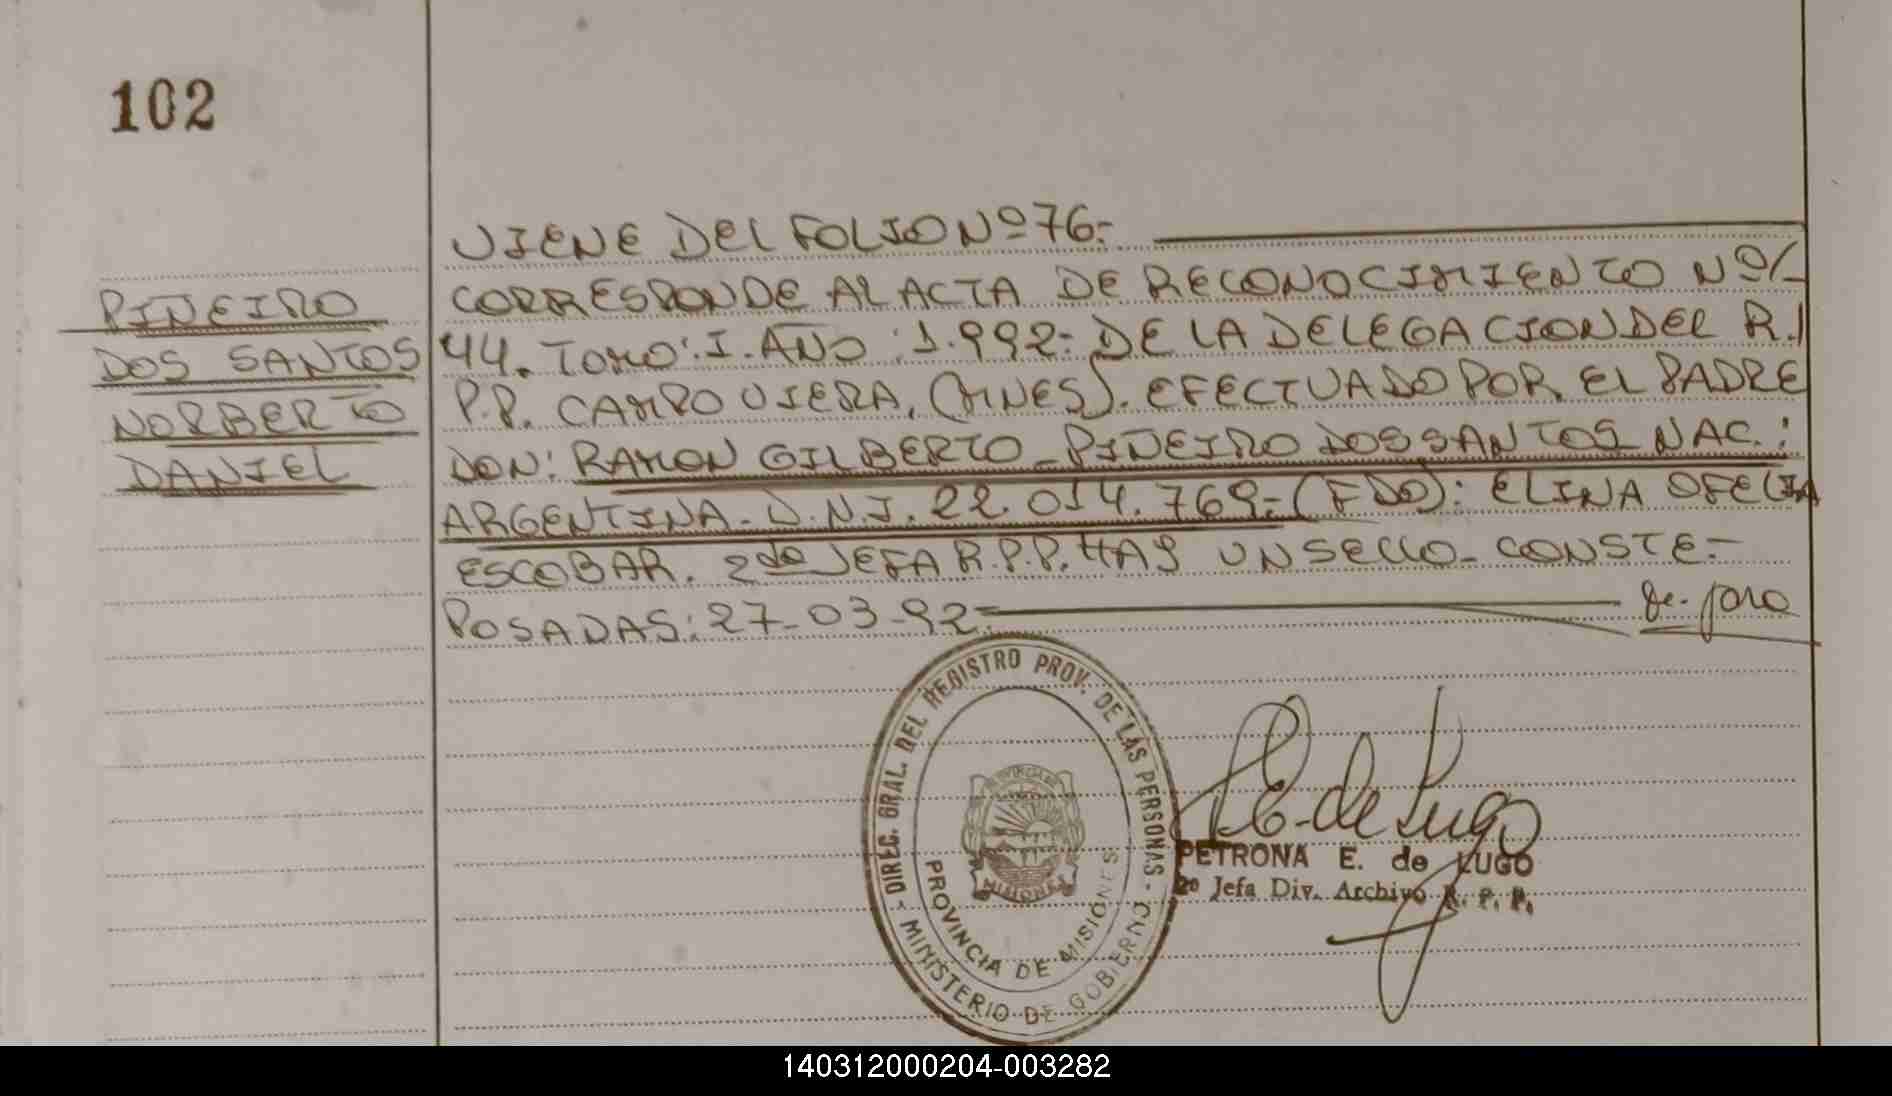 102
VIENE DEL FOLIO Nº 76.-
PIÑEIRO
DOS SANTOS
NORBERTO
DANIEL
CORRESPONDE AL ACTA DE RECONOCIMIENTO Nº/-
44. TOMO: I. AÑO: 1.992- DE LA DELEGACION DEL R.
P.P. CAMPO VIERA, (MNES). EFECTUADO POR EL PADRE
DON: RAMON GILBERTO PIÑEIRO DOS SANTOS NAC.:
ARGENTINA. D.N.I. 22.014.769.- (FDO): ELINA OFELIA
ESCOBAR. 2da JEFA R.P.P. HAY UN SELLO. CONSTE.-
POSADAS: 27-03-92-
DIREC. GRAL. DEL REGISTRO PROV. DE LAS PERSONAS -
MINISTERIO DE GOBIERNO -
PROVINCIA DE MISIONES
MISIONES
P E. de Lugo
PETRONA E. de LUGO
2º Jefa Div. Archivo R. P. P.
140312000204-003282